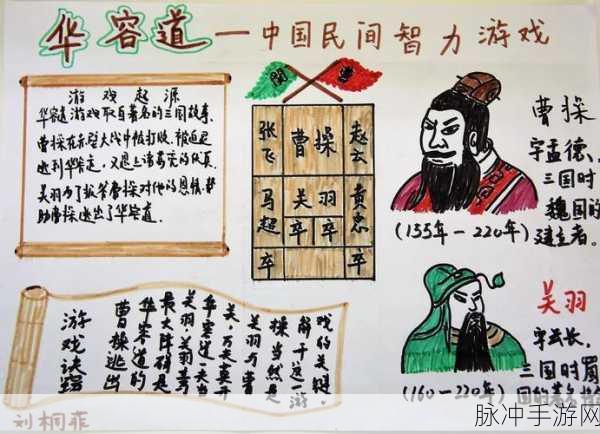 华容道—中国民间智力游戏
游戏起源
华容道游戏取自著名的三国故事,
曹操在赤壁大战中被打败,被迫退
逃到华容道,又遇上诸葛亮的伏兵,
关羽为了报答曹操对他的恩情,帮
助曹操逃出了华容道。
關 曹
张飞
曹操
赵云
马超
关羽
黄忠
卒 卒
卒 卒
曹操
字孟德、
三国时
魏国的
建立者。
(155年—220年)
关羽
字云长,
三国时蜀
国的著名将
(160—220年)
游戏诀窍
曹操逃出
华容道的
最大障碍是
关羽,关羽立马
华容道,一夫当
关,万夫莫开
关羽与曹
操当然是
解开这一游
戏的关键。
刘桐菲
脉冲手游网